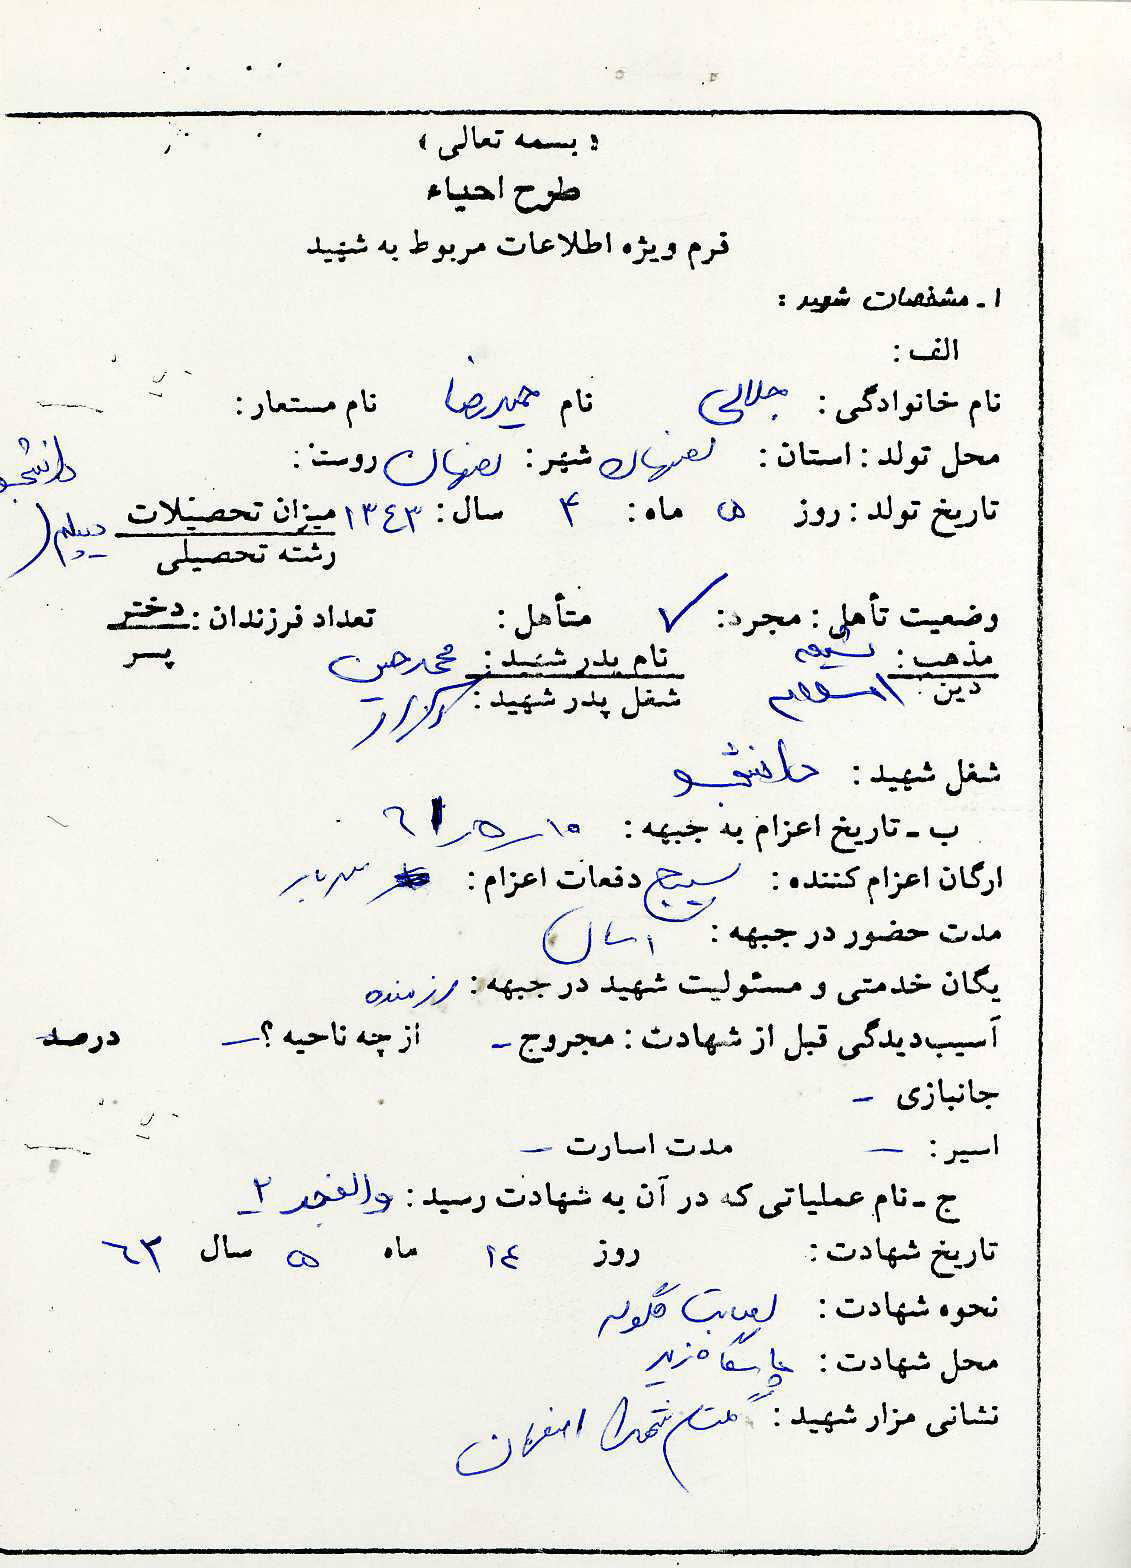 « بسمه تعالی »
طرح احیاء
فرم ویژه اطلاعات مربوط به شهید
۱ ـ مشخصات شهید :
الف :
نام خانوادگی : جلالی نام حمیدرضا نام مستعار :
محل تولد : استان : اصفهان شهر : اصفهان روستا :
تاریخ تولد : روز ۵ ماه : ۴ سال : ۱۳۴۳ میزان تحصیلات دیپلم ( دانشجو
رشته تحصیلی
وضعیت تأهل : مجرد : ✓ متأهل : تعداد فرزندان : دختر
پسر
مذهب : شیعه نام پدر شهید : محمدحسین
دین : اسلام شغل پدر شهید :
شغل شهید : دانشجو
ب ـ تاریخ اعزام به جبهه : ۱۰ ر ۵ ر ۶۱
ارگان اعزام کننده : بسیج دفعات اعزام :
مدت حضور در جبهه : ۱ سال
یگان خدمتی و مسئولیت شهید در جبهه : رزمنده
آسیب‌دیدگی قبل از شهادت : مجروح - از چه ناحیه ؟ - درصد
جانبازی -
اسیر : - مدت اسارت -
ج ـ نام عملیاتی که در آن به شهادت رسید : والفجر ۲
تاریخ شهادت : روز ۱۴ ماه ۵ سال ۶۲
نحوه شهادت : اصابت گلوله
محل شهادت : پاسگاه زید
نشانی مزار شهید : گلستان شهدا اصفهان